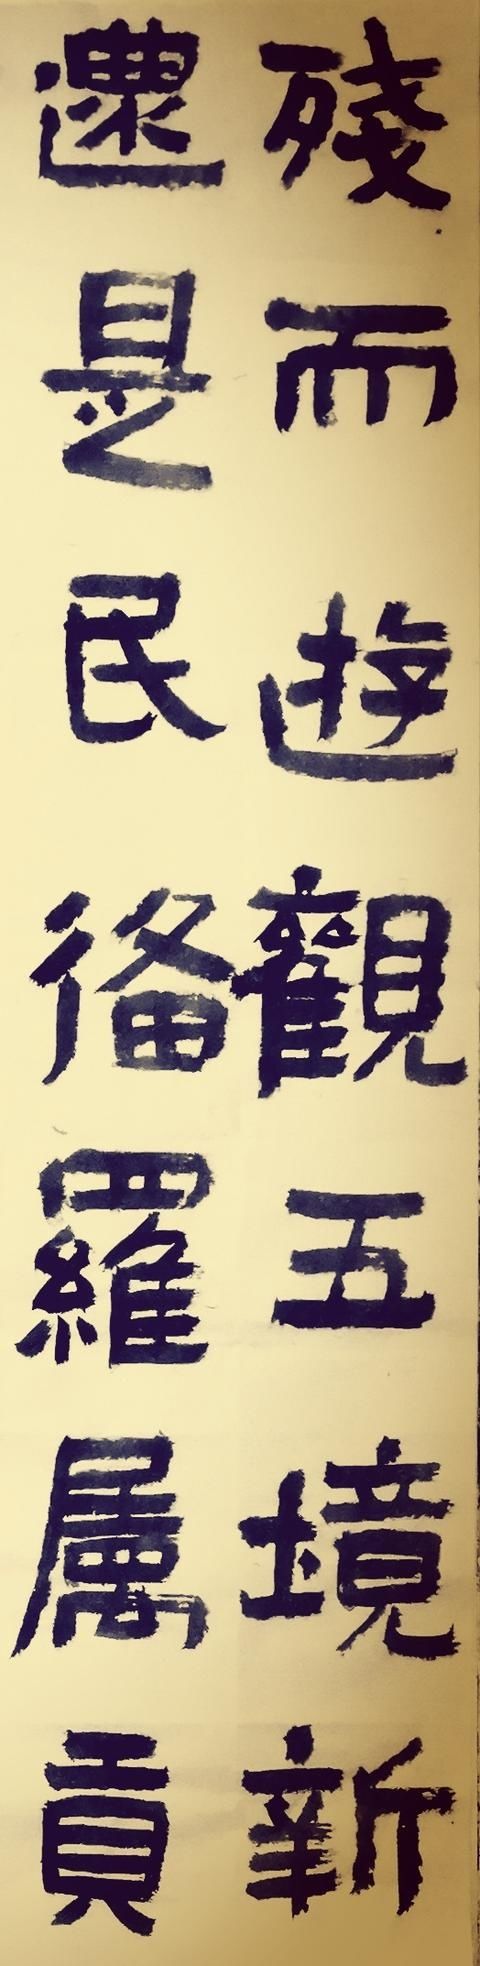 殘而遊觀五境新
是民備羅屬貢